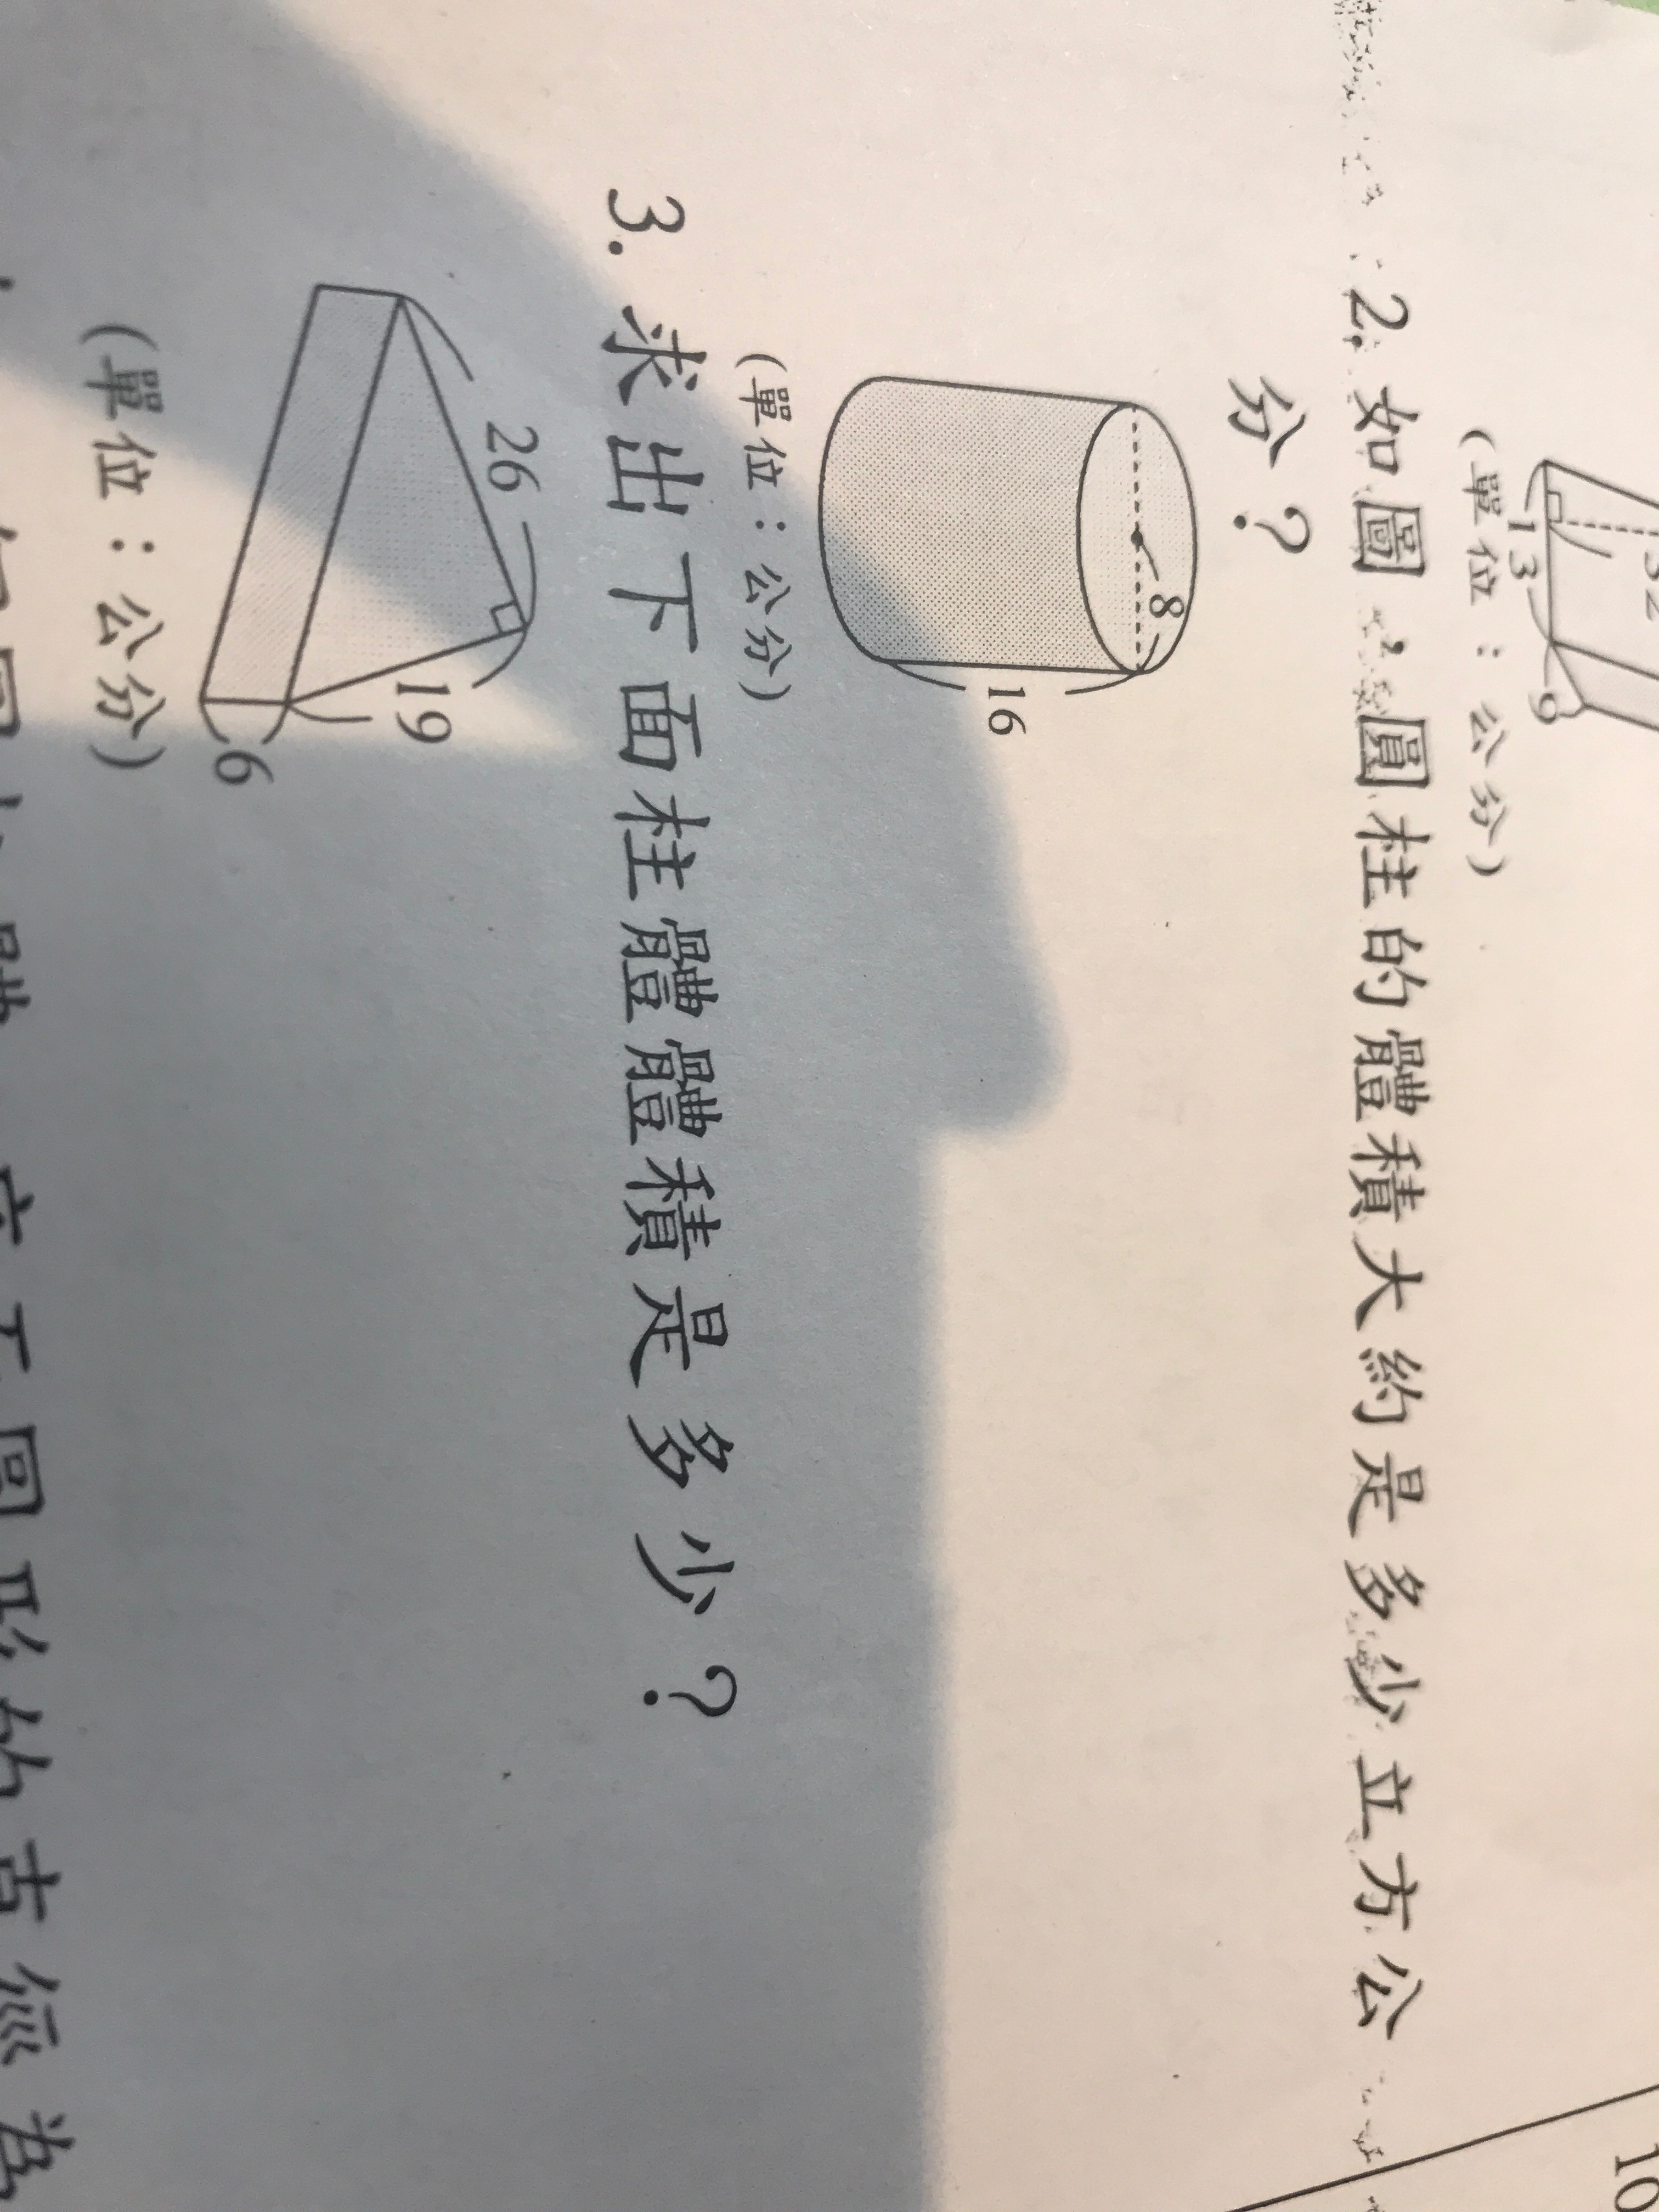 13
9
(單位：公分)
2. 如圖，圓柱的體積大約是多少立方公
分？
8
16
(單位：公分)
3. 求出下面柱體體積是多少？
26
19
6
(單位：公分)
10